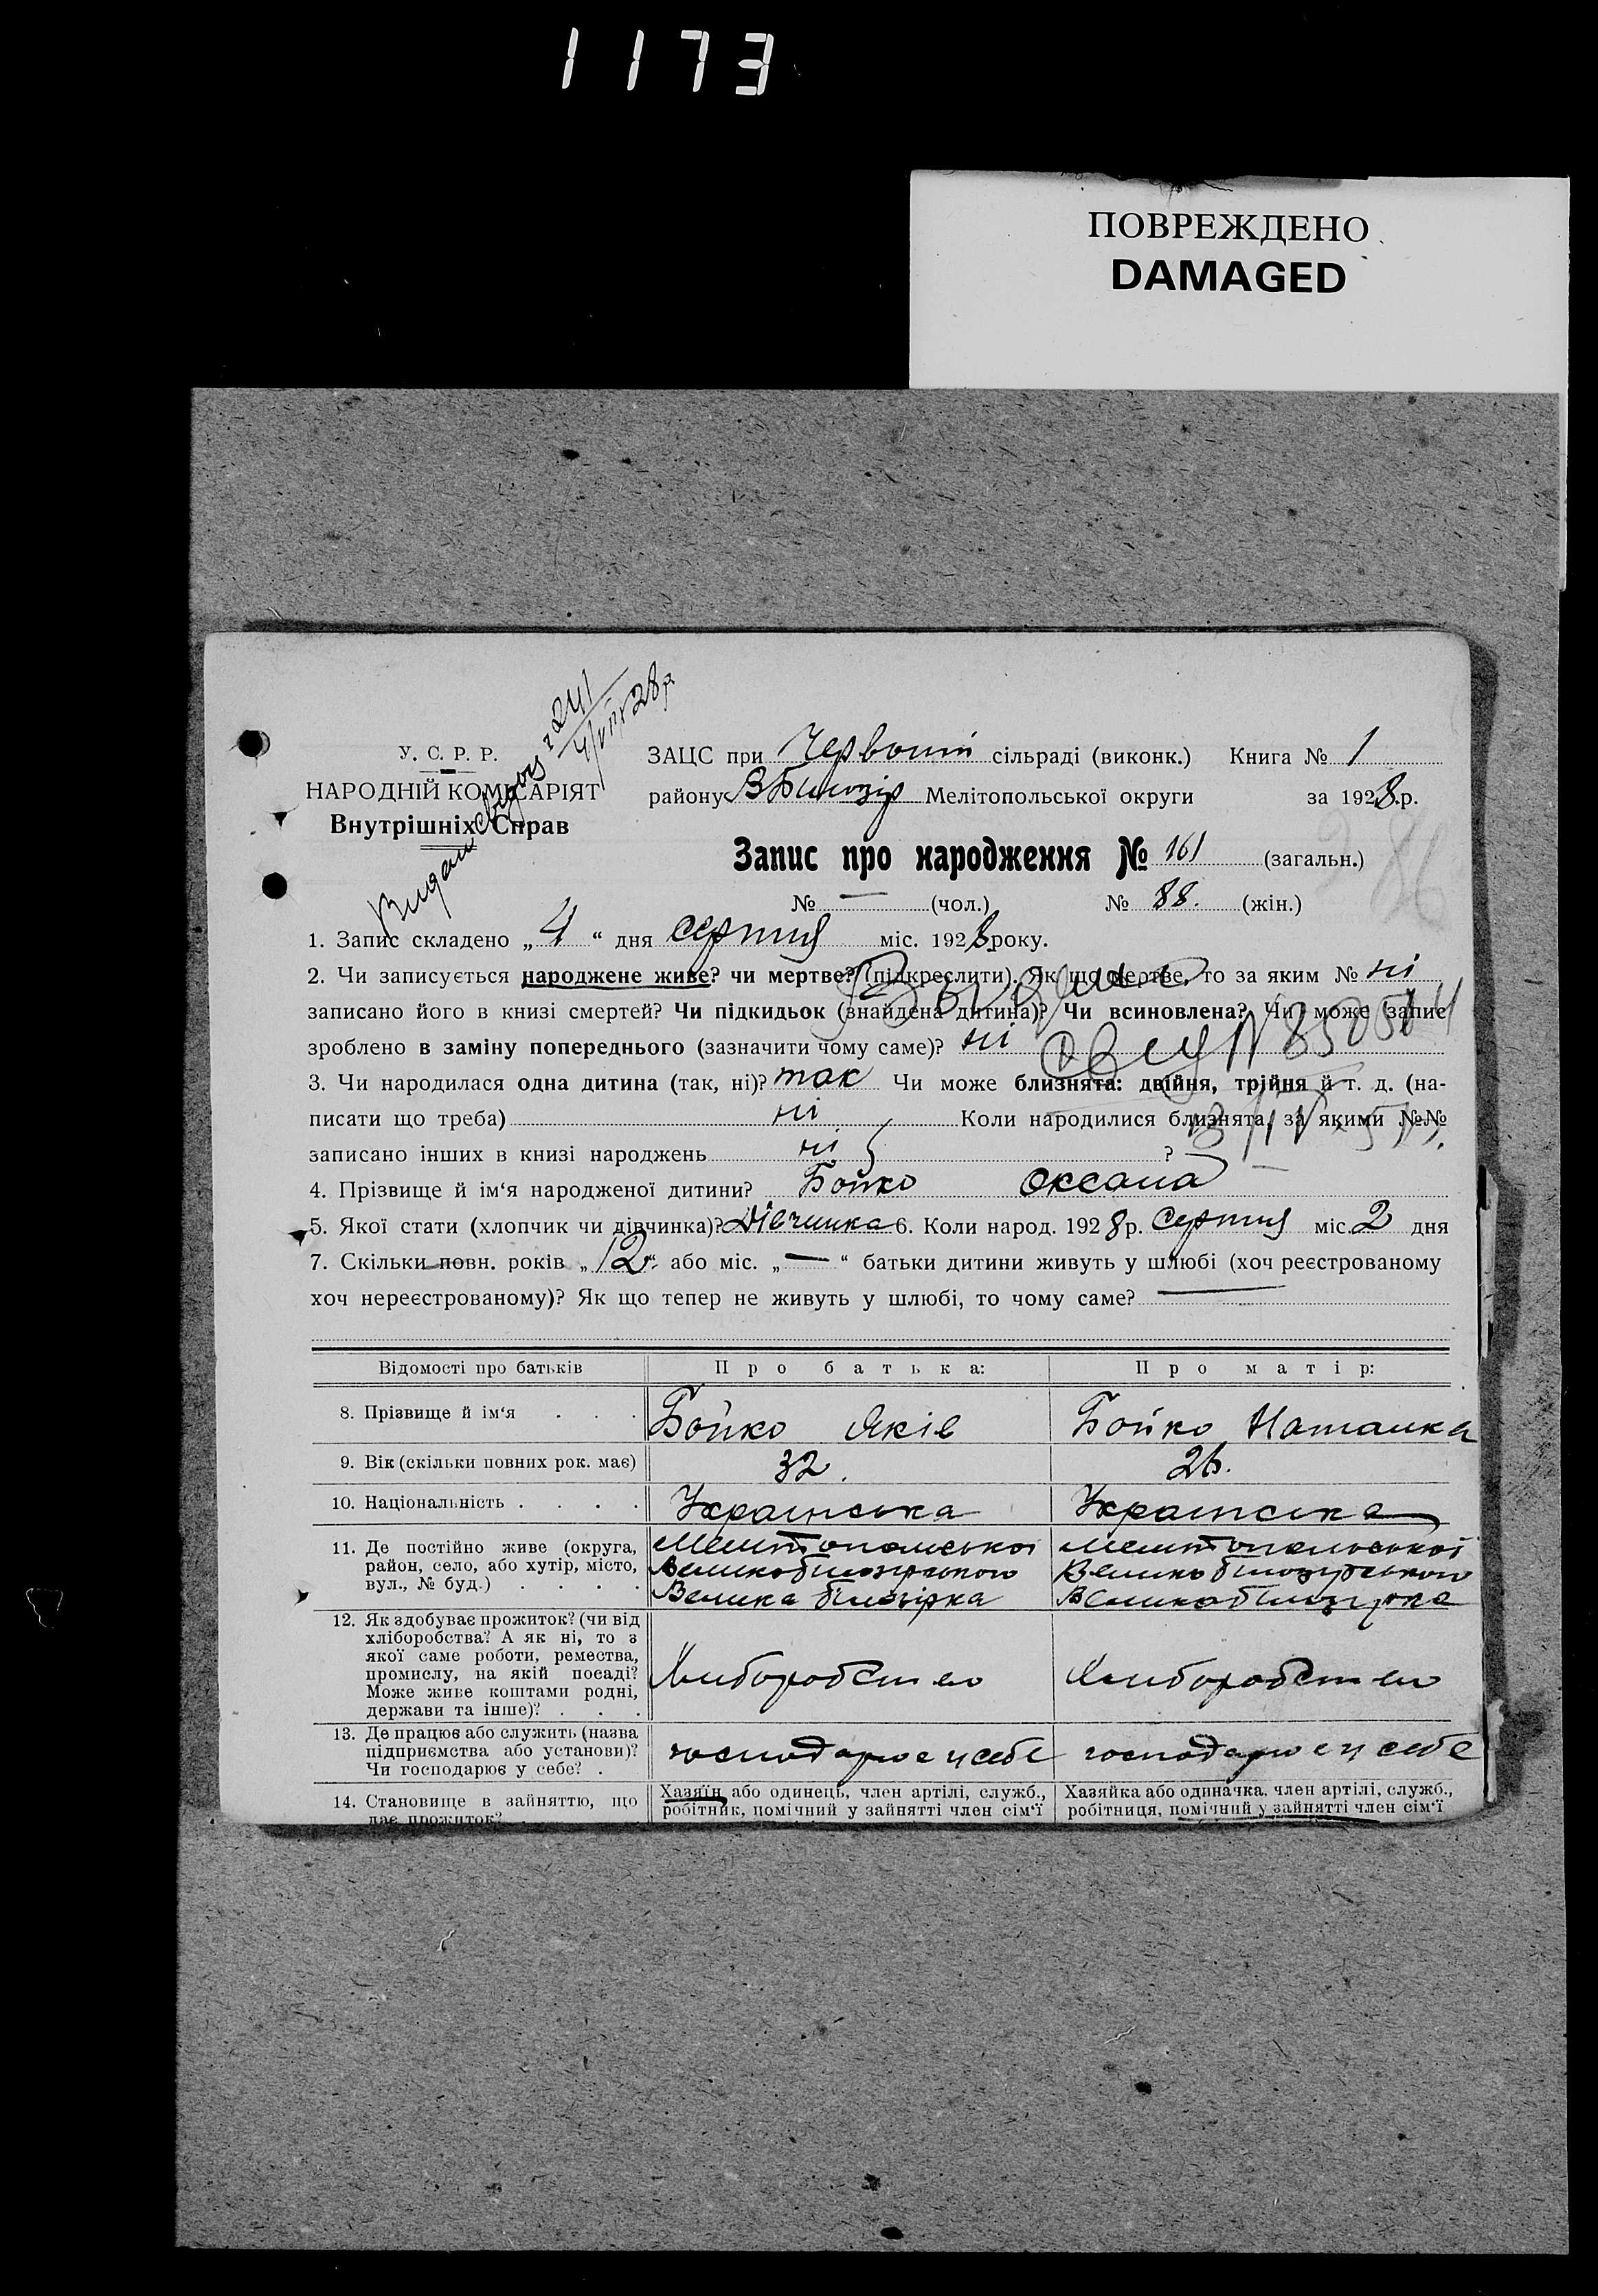 1173
ПОВРЕЖДЕНО
DAMAGED
241
4/VIII 28 р
Видан
У. С. Р. Р.
НАРОДНІЙ КОМІСАРІЯТ
Внутрішніх Справ
ЗАЦС при Червоній сільраді (виконк.) Книга № 1
району В Білозір Мелітопольської округи за 1928 р.
Запис про народження № 161 (загальн.)
86
№ — (чол.) № 88. (жін.)
1. Запис складено „4“ дня серпня міс. 1928 року.
2. Чи записується народжене живе? чи мертве? (підкреслити). Як що мертве, то за яким № ні
записано його в книзі смертей? Чи підкидьок (знайдена дитина)? Чи всиновлена? Чи може запис
зроблено в заміну попереднього (зазначити чому саме)? ні
3. Чи народилася одна дитина (так, ні)? так Чи може близнята: двійня, трійня й т. д. (на-
писати що треба) ні Коли народилися близнята, за якими №№
записано інших в книзі народжень ні ?
4. Прізвище й ім‘я народженої дитини? Бойко Оксана
5. Якої стати (хлопчик чи дівчинка)? Дівчинка 6. Коли народ. 1928 р. Серпня міс. 2 дня
7. Скільки повн. років „12“ або міс. „—“ батьки дитини живуть у шлюбі (хоч реєстрованому
хоч нереєстрованому)? Як що тепер не живуть у шлюбі, то чому саме? —
Відомості про батьків Про батька: Про матір:
8. Прізвище й ім‘я . . . Бойко Яків Бойко Наталка
9. Вік (скільки повних рок. має) 32. 26.
10. Національність . . . . Українська Українська
11. Де постійно живе (округа,
район, село, або хутір, місто,
вул., № буд.) . . . .
Мелітопольської
Великобілозірського
Велика білозірка
Мелітопольської
Великобілозірського
Великобілозірка
12. Як здобуває прожиток? (чи від
хліборобства? А як ні, то з
якої саме роботи, ремества,
промислу, на якій посаді?
Може живе коштами родні,
держави та інше)? . . .
Хліборобство
Хліборобство
13. Де працює або служить (назва
підприємства або установи)?
Чи господарює у себе? .
господарює у себе
господарює у себе
14. Становище в зайняттю, що
дає прожиток? .
Хазяїн або одинець, член артілі, служб.,
робітник, помічний у зайнятті член сім‘ї
Хазяйка або одиначка, член артілі, служб.,
робітниця, помічний у зайнятті член сім‘ї